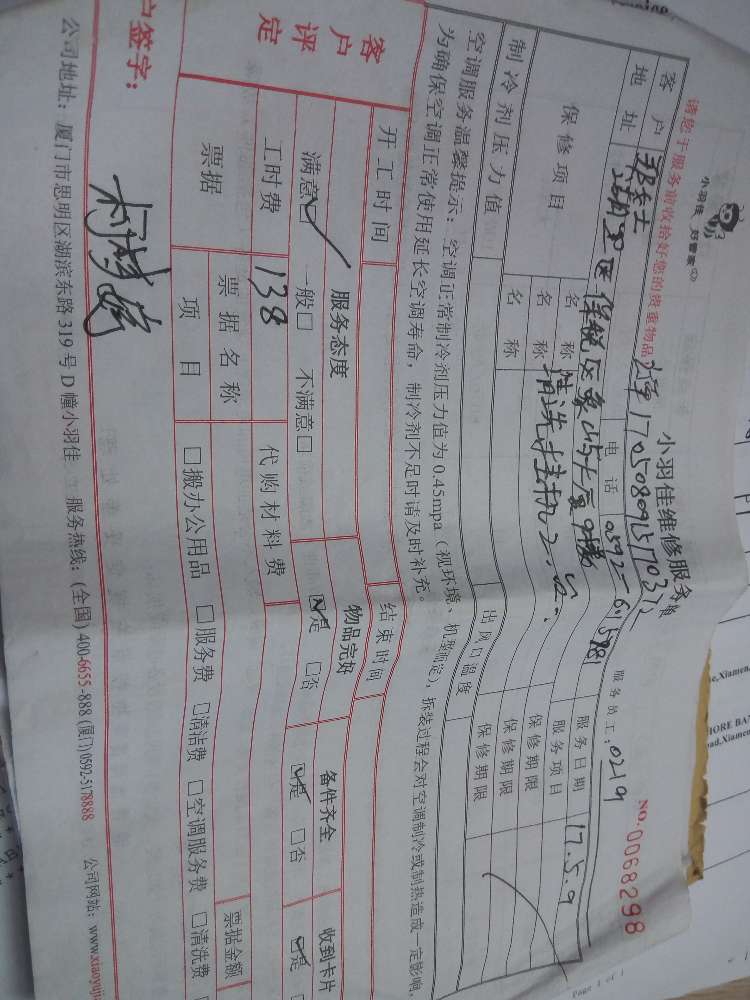 小羽佳 好管家
小羽佳维修服务单
NO.0068298
请您于服务前收拾好您的贵重物品
服务员工:0219
客户
电话
服务日期 17.5.9
地址
保税区象屿大厦9楼
保修项目
名称 清洗挂机2台
服务项目
名称
保修期限
名称
保修期限
保修期限
制冷剂压力值
出风口温度
空调服务温馨提示:空调正常制冷剂压力值为0.45mpa(视环境、机型而定),拆装过程会对空调制冷或制热造成一定影响,
为确保空调正常使用延长空调寿命,制冷剂不足时请及时补充。
开工时间
结束时间
客户评定
服务态度
物品完好
备件齐全
收到卡片
满意☑ 一般□ 不满意□
☑是 □否
☑是 □否
☑是
工时费 138
代购材料费
票据
票据名称
票据金额
项目
□搬办公用品 □服务费 □清洁费 □空调服务费 □清洗费
户签字:
公司地址:厦门市思明区湖滨东路319号D幢小羽佳
服务热线:(全国)400-6655-888 (厦门)0592-5178888
公司网站:www.xiaoyuji
Page 1 of 1